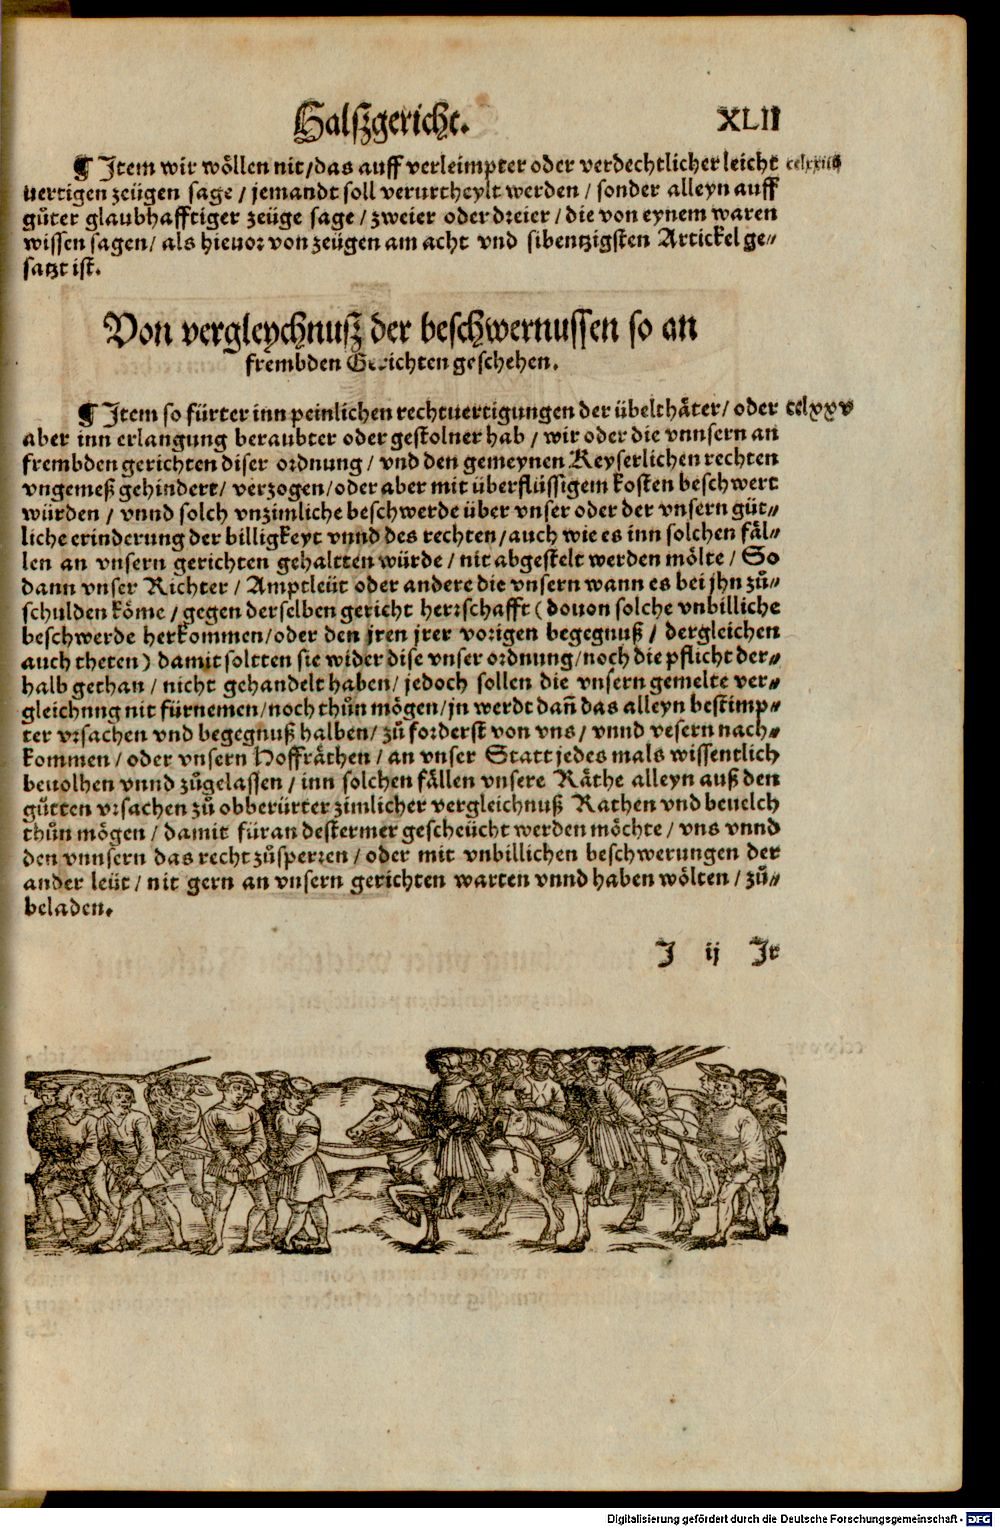 Halszgericht.
XLII
¶ Item wir wöllen nit/das auff verleimpter oder verdechtlicher leicht
uertigen zeügen sage / jemandt soll verurtheylt werden / sonder alleyn auff
gůter glaubhafftiger zeüge sage / zweier oder dreier / die von eynem waren
wissen sagen/ als hieuor von zeügen am acht vnd sibentzigsten Artickel ge⸗
satzt ist.
Von vergleychnusz der beschwernussen so an
frembden Gerichten geschehen.
¶ Item so fürter inn peinlichen rechtuertigungen der übelthäter/ oder
cclxxv
aber inn erlangung beraubter oder gestolner hab / wir oder die vnnsern an
frembden gerichten diser ordnung / vnd den gemeynen Keyserlichen rechten
vngemeß gehindert/ verzogen/oder aber mit überflüssigem kosten beschwert
würden / vnnd solch vnzimliche beschwerde über vnser oder der vnsern güt⸗
liche erinderung der billigkeyt vnnd des rechten/auch wie es inn solchen fäl⸗
len an vnsern gerichten gehaltten würde / nit abgestelt werden mölte / So
dann vnser Richter / Amptleüt oder andere die vnsern wann es bei jhn zů⸗
schulden köme / gegen derselben gericht herrschafft ( douon solche vnbilliche
beschwerde herkommen/oder den jren jrer vorigen begegnuß / dergleichen
auch theten ) damit soltten sie wider dise vnser ordnung/noch die pflicht der⸗
halb gethan / nicht gehandelt haben/ jedoch sollen die vnsern gemelte ver⸗
gleichnng nit fürnemen/noch thůn mögen/jn werdt dañ das alleyn bestimp⸗
ter vrsachen vnd begegnuß halben/ zů forderst von vns/ vnnd vesern nach⸗
kommen/ oder vnsern Hoffräthen/ an vnser Statt jedes mals wissentlich
beuolhen vnnd zůgelassen / inn solchen fällen vnsere Räthe alleyn auß den
gütten vrsachen zů obberürter zimlicher vergleichnuß Rathen vnd beuelch
thůn mögen / damit füran destermer gescheücht werden möchte / vns vnnd
den vnnsern das recht zůsperren / oder mit vnbillichen beschwerungen der
ander leüt / nit gern an vnsern gerichten warten vnnd haben wölten / zů⸗
beladen.
J ij Jt
Digitalisierung gefördert durch die Deutsche Forschungsgemeinschaft - DFG